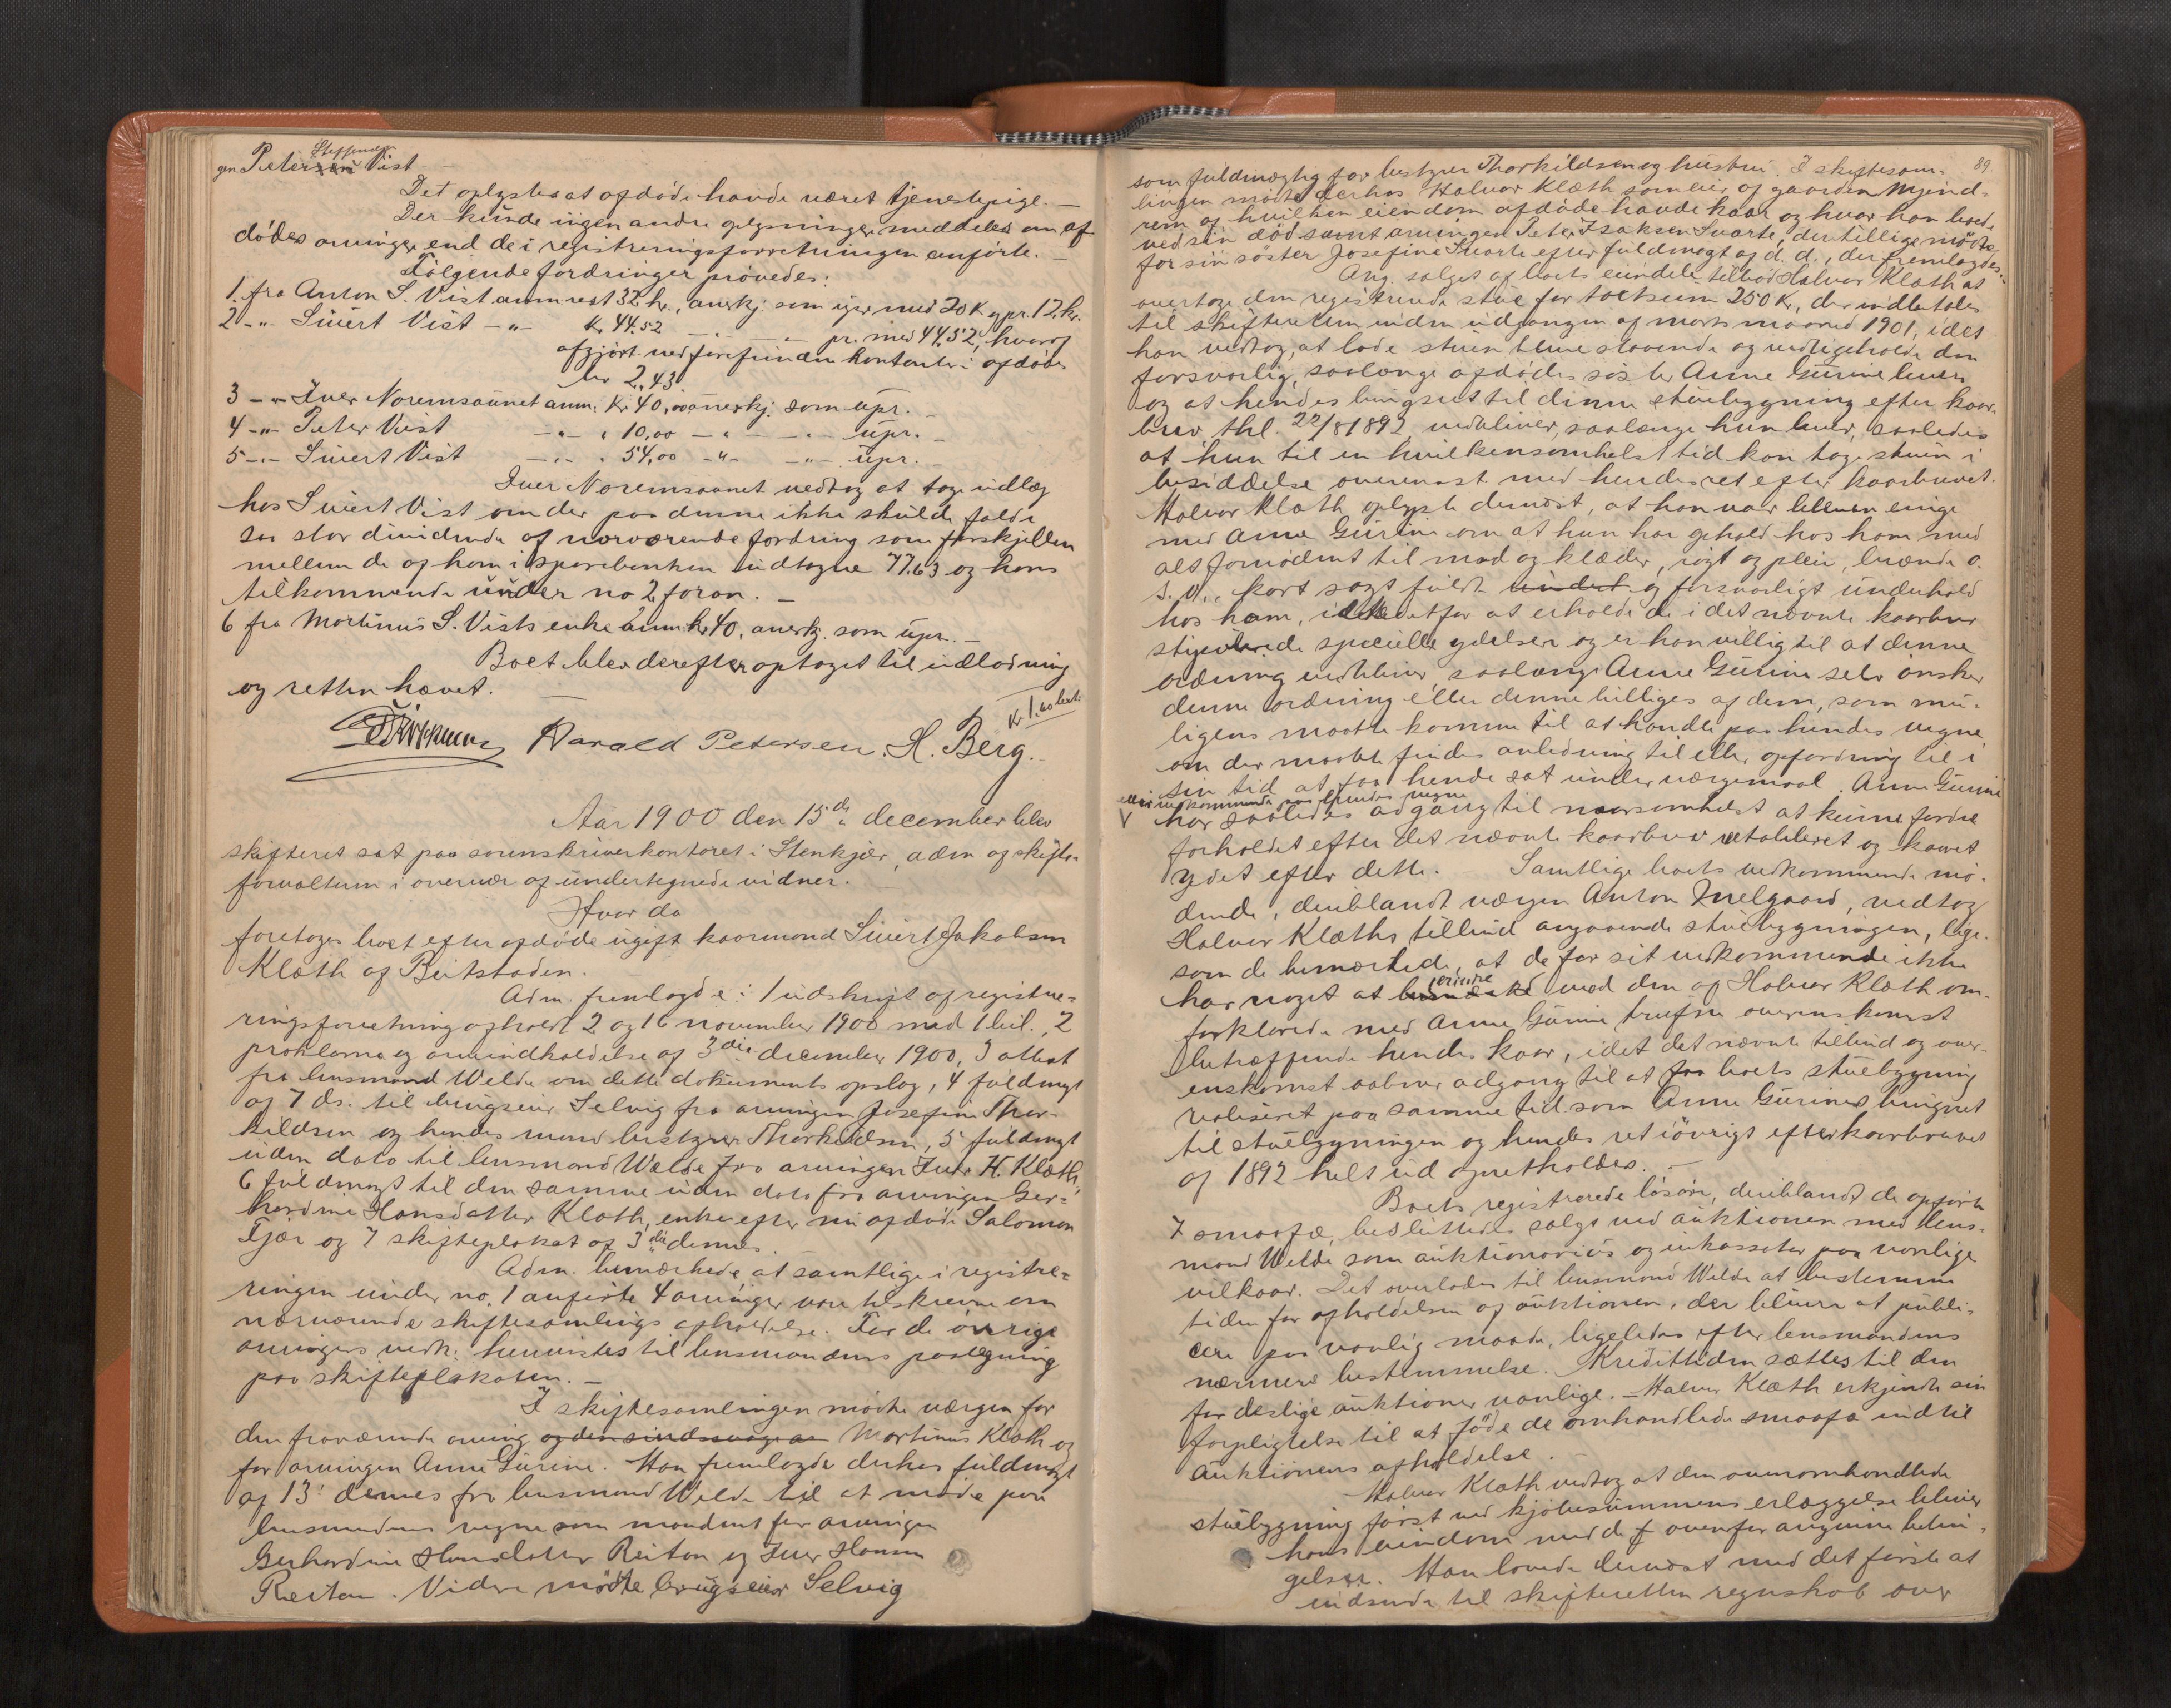 gen Petersen Steffensen Vist
Det oplystes at afdøde havde været tjenestepige. —
Der kunde ingen andre oplysninger meddeles om af-
dødes arvinger end de i registreringsforretningen anførte. —
Følgende fordringer prøvedes:
1. fra Anton S. Vist anm rest 32 kr., anerkj. som upr med 20 K og pr. 12 kr.
2 -"- Sivert Vist -"- Kr 44.52 -"- pr. med 44,52, hvoraf
afgjort ved forefunden kontanter i afdødes
bo 2,43.
3 -"- Iver Noremsaunet anm: Kr 40,00 anerkj. som upr. -
4 -"- Peter Vist -"- " 10,00 -"- -"- upr. -
5 -"- Sivert Vist -"- " 54,00 -"- -"- upr. -
Iver Noremsaunet vedtog at tage udlæg
hos Sivert Vist om der paa denne ikke skulde falde
saa stor dividende af nærværende fordring som forskjellen
mellem de af ham i sparebanken udtagne 77.63 og hans
tilkommende under no 2 foran. —
6 fra Martinus S. Vists enke anm kr 40, anerkj. som upr. —
Boet blev derefter optaget til udlodning
og retten hævet.
Kr 1.60 bet.
Harald Petersen. H. Berg.
Aar 1900 den 15de december blev
skifteret sat paa sorenskriverkontoret i Stenkjær, adm af skifte-
forvalteren i overvær af undertegnede vidner.
Hvor da
foretoges boet efter afdøde ugift kaarmand Sivert Jakobsen
Klæth af Beitstaden.
Adm. fremlagde: 1 udskrift af registre-
ringsforretning afholdt 2 og 16 november 1900 med 1 bil., 2
proklama og arveindkaldelse af 3die december 1900, 3 attest
fra lensmand Welde om dette dokuments opslag, 4 fuldmagt
af 7 ds. til brugseier Selvig fra arvingen Josefine Thor-
kildsen og hendes mand bestyrer Thorkildsen, 5 fuldmagt
uden dato til lensmand Welde fra arvingen Iver H. Klæth,
6 fuldmagt til den samme uden dato fra arvingen Ger-
hardine Hansdatter Klæth, enke efter nu afdøde Salomon
Fjær og 7 skifteplakat af 3die dennes.
Adm. bemærkede, at samtlige i registre-
ringen under no. 1 anførte 4 arvinger vare tilskrevne om
nærværende skiftesamlings afholdelse. For de øvrige
arvingers vedk. henvistes til lensmandens paategning
paa skifteplakaten. —
I skiftesamlingen mødte værgen for
den fraværende arving og den sindssvage av Martinus Klæth og
for arvingen Anne Gurine. Han fremlagde derhos fuldmagt
af 13. dennes fra lensmand Welde til at møde paa
lensmandens vegne som mandant for arvingen
Gerhardine Hansdatter Reitan og Iver Hansen
Reitan. Videre mødte brugseier Selvig
89
som fuldmægtig for bestyrer Thorkildsen og hustru. I skiftesam-
lingen mødte derhos Halvor Klæth som eier af gaarden Mjønd-
rem af hvilken eiendom afdøde havde kaar og hvor han boede
ved sin død samt arvingen Peter Isaksen Svarte, der tillige mødte
for sin søster Josefine Svarte efter fuldmagt af d. d., der fremlagdes.
Ang. salget af boets eiendele tilbød Halvor Klæth at
overtage den registrerede stue for takstsum 250 Kr, der indbetales
til skifteretten inden udgangen af marts maaned 1901, idet
han vedtog, at lade stuen blive staaende og vedligeholde den
forsvarlig, saalænge afdødes søster Anne Gurine lever
og at hendes brugsret til denne stuebygning efter kaar-
brev thl. 22/8 1892 vedbliver, saalænge hun lever, saaledes
at hun til en hvilkensomhelst tid kan tage stuen i
besiddelse overenst. med hendes ret efter kaarbrevet.
Halvor Klæth oplyste dernæst, at han var bleven enige
med Anne Gurine om at hun har ophold hos ham med
alt fornødent til mad og klæder, røgt og pleie, brænde o.
s. v., kort sagt fuldt undert og forsvarligt underhold
hos ham, istedetfor at erholde de i det nævnte kaarbrev
stipulerede specielle ydelser og er han villig til at denne
ordning vedbliver, saalænge Anne Gurine selv ønsker
denne ordning eller denne billiges af dem, som mu-
ligens maatte komme til at handle paa hendes vegne,
om der maatte findes anledning til eller opfordring til i
sin tid at faa hende sat under værgemaal. Anne Gurine
eller vedkommende paa hendes vegne
har saaledes adgang til naarsomhelst at kunne fordre
forholdet efter det nævnte kaarbrev retableret og kaaret
ydet efter dette. Samtlige boets vedkommende mø-
dende, deriblandt værgen Anton Inelgaard, vedtog
Halvor Klæths tilbud angaaende stuebygningen, lige-
som de bemærkede, at de for sit vedkommende ikke
har noget at bemærke erindre mod den af Halvor Klæth om-
forklarede med Anne Gurine trufne overenskomst
betræffende hendes kaar, idet det nævnte tilbud og over-
enskomst aabner adgang til at faa boets stuebygning
realiseret paa samme tid som Anne Gurines brugsret
til stuebygningen og hendes ret iøvrigt efter kaarbrevet
af 1892 helt ud opretholdes. —
Boets registrerede løsøre, deriblandt de opførte
7 smaafæ, besluttedes solgt ved auktionen med lens-
mand Welde som auktionarius og inkassator paa vanlige
vilkaar. Det overlodes til lensmand Welde at bestemme
tiden for afholdelsen af auktionen, der bliver at publi-
cere paa vanlig maade, ligeledes efter lensmandens
nærmere bestemmelse. Kredittiden sættes til den
for deslige auktioner vanlige. — Halvor Klæth erkjendte sin
forpligtelse til at føde de omhandlede smaafæ indtil
auktionens afholdelse.
Halvor Klæth vedtog at den ovenomhandlede
stuebygning først ved kjøbesummens erlæggelse bliver
hans eiendom med de ovenfor angivne betin-
gelser. Han lovede dernæst med det første at
indsende til skifteretten regnskab over